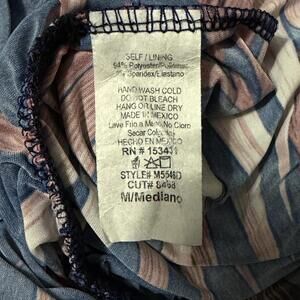 SELF / LINING
94% Polyester/Poliéster
Spandex/Elastano
HAND WASH COLD
DO NOT BLEACH
HANG OR LINE DRY
MADE IN MEXICO
Lave Frio a Mano No Cloro
Sacar
HECHO EN MEXICO
RN # 153431
STYLE# M5546D
CUT# 8468
M/Mediano